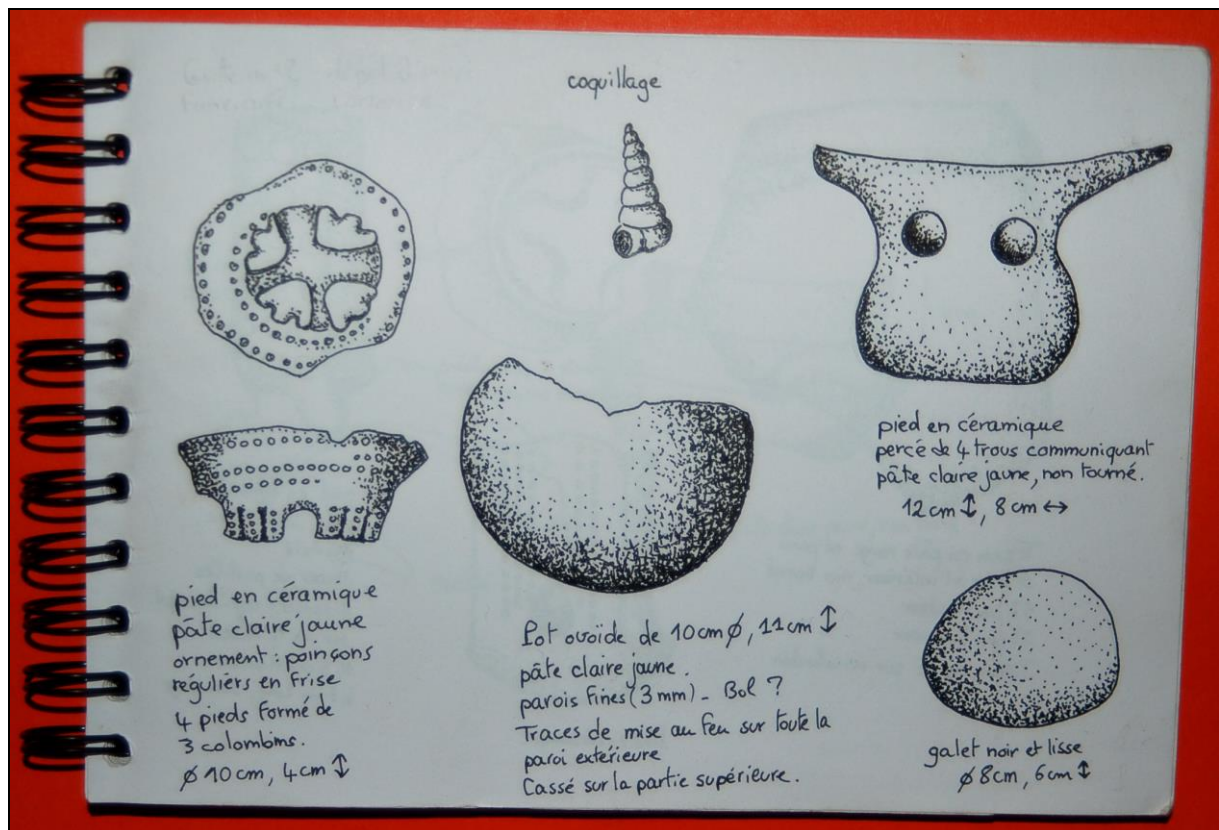 coquillage
pied en céramique
pâte claire jaune
ornement : poinçons
réguliers en frise
4 pieds formé de
3 colombins.
Ø 10 cm, 4 cm ↕
Pot ovoïde de 10 cm Ø, 11 cm ↕
pâte claire jaune.
parois fines (3 mm) - Bol ?
Traces de mise au feu sur toute la
paroi extérieure
Cassé sur la partie supérieure.
pied en céramique
percé de 4 trous communiquant
pâte claire jaune, non tourné.
12 cm ↕, 8 cm ↔
galet noir et lisse
Ø 8 cm, 6 cm ↕